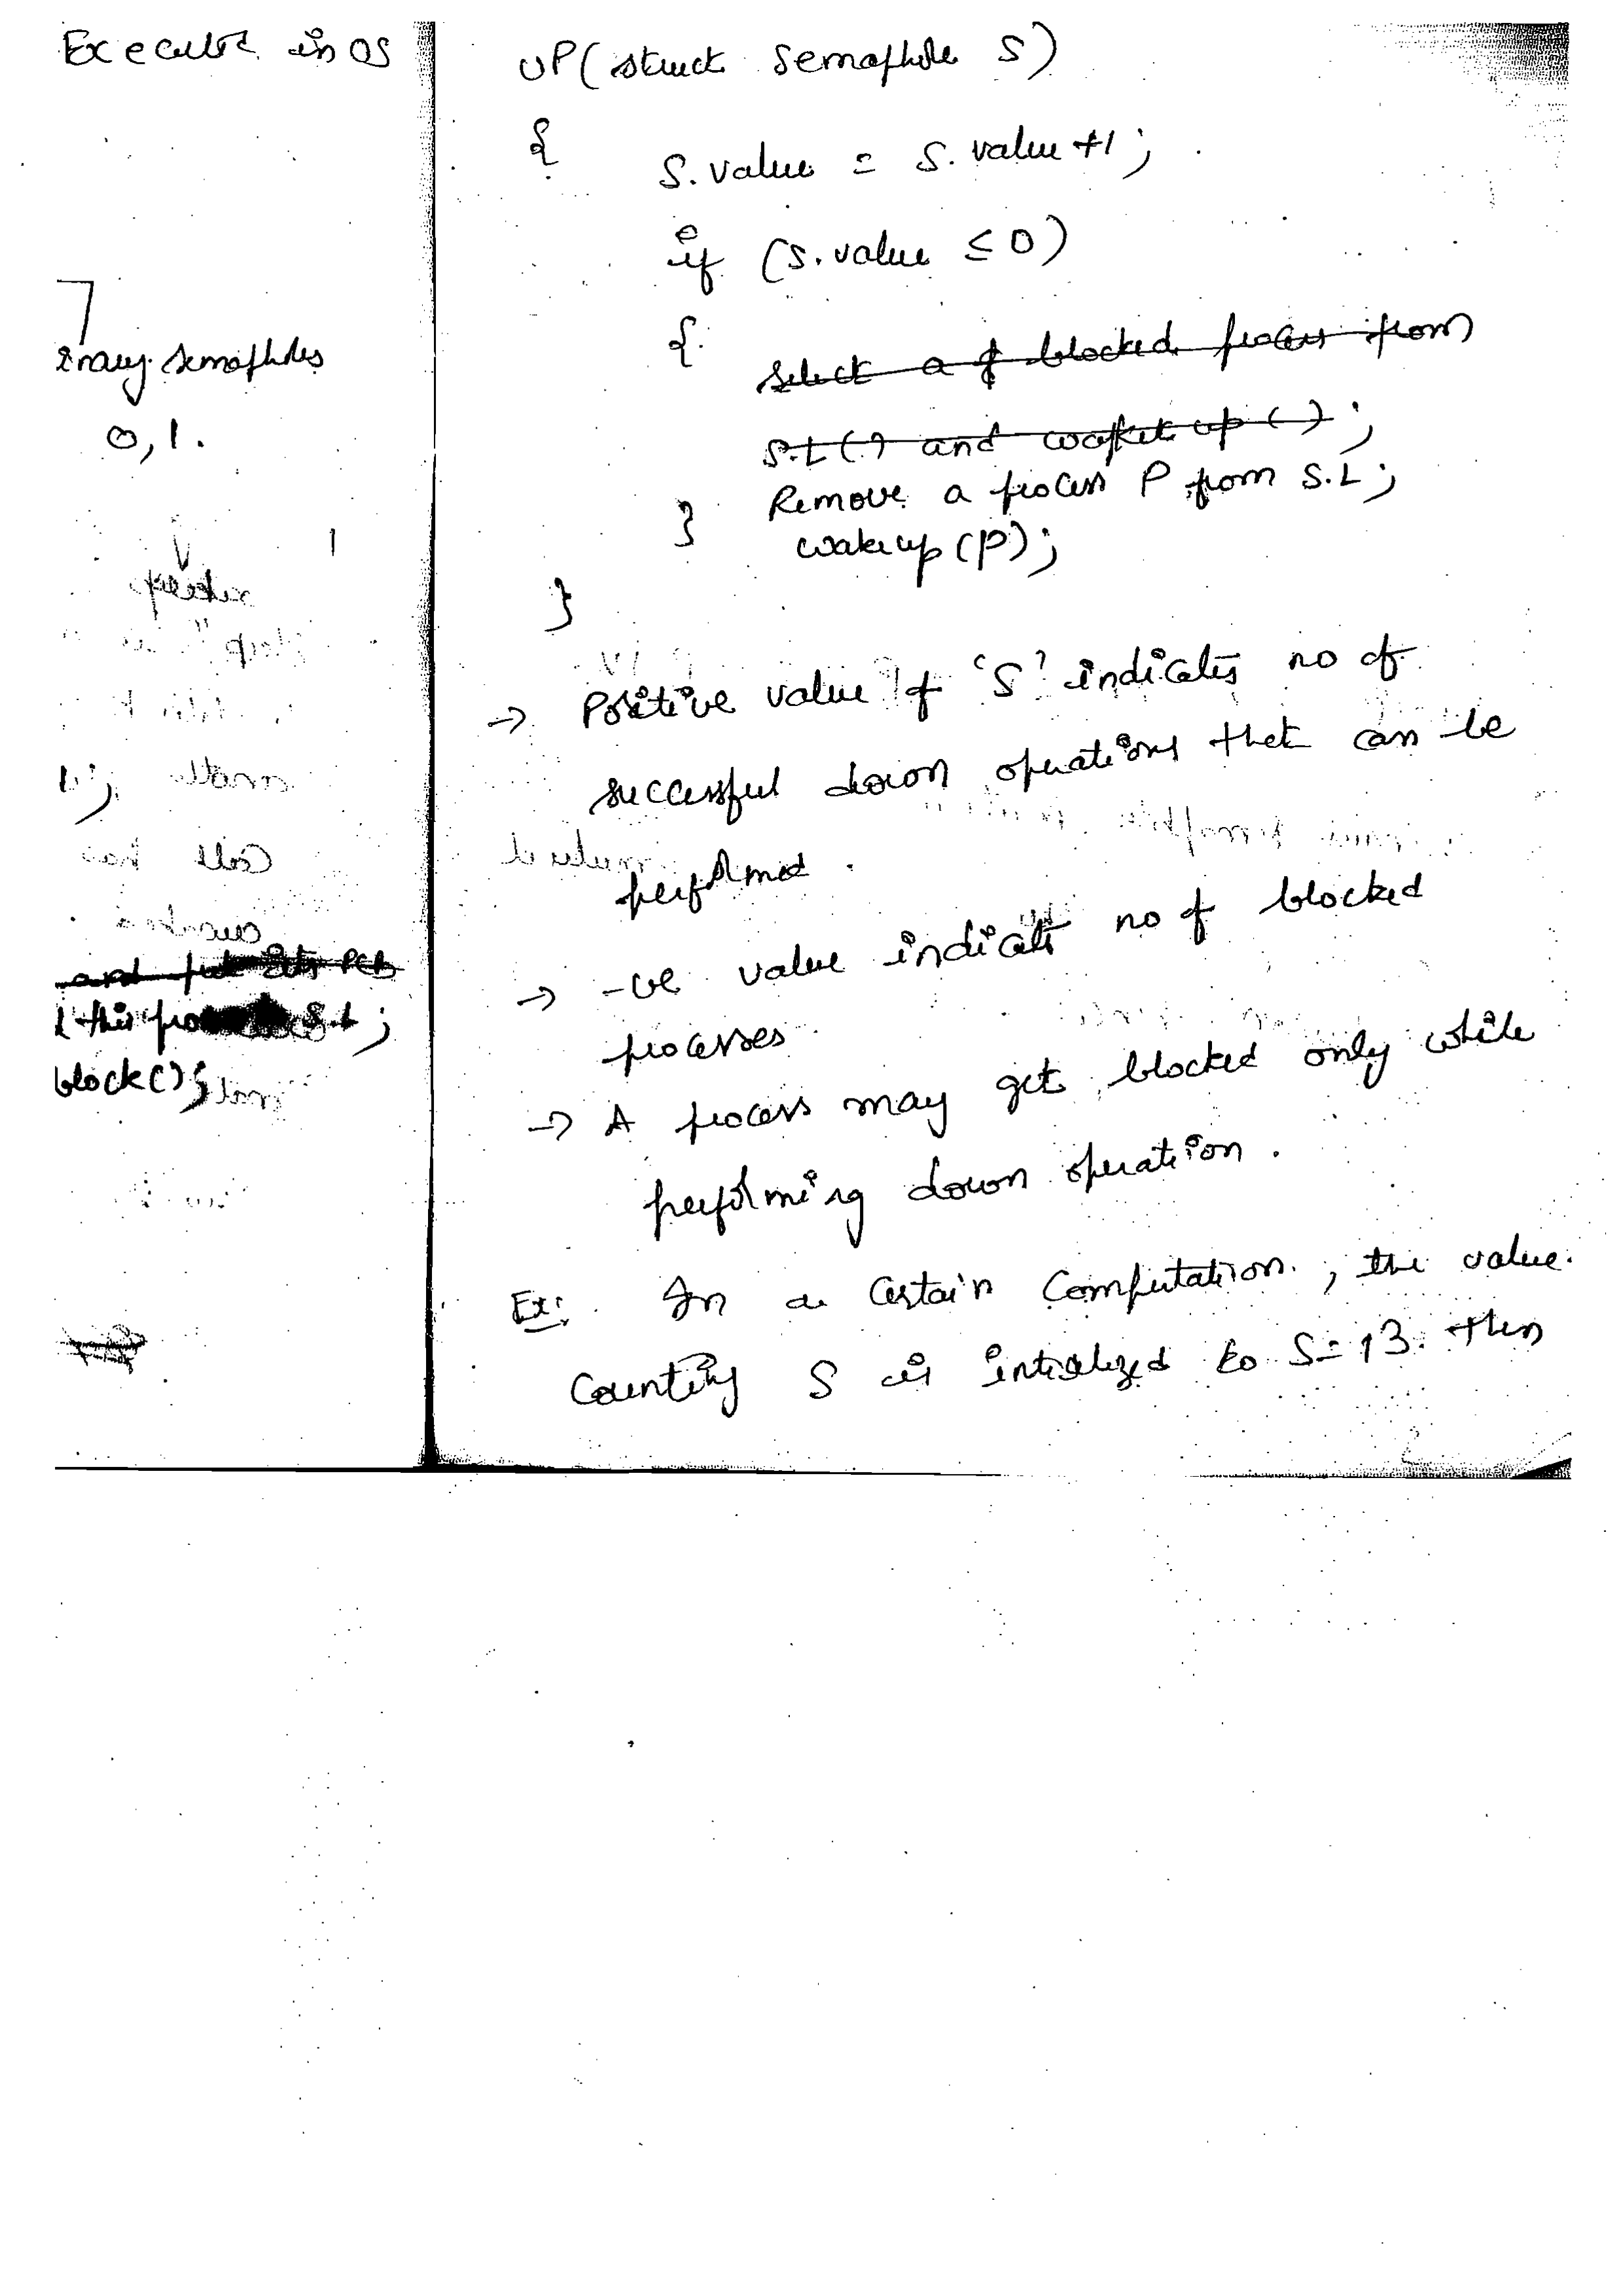 Execute in OS
inary semaphores
0, 1.
1);
and put its PCB
this S.L;
block();
UP(struct Semaphore S)
{
S.value = S.value+1;
if (S.value ≤ 0)
{
Select a of blocked process from
S.L() and wakeup();
Remove a process P from S.L;
} wakeup(P);
}
→ Positive value of 'S' indicates no of
successful down operations that can be
performed.
→ -ve value indicates no of blocked
processes
→ A process may get blocked only while
performing down operation.
Ex: In a Certain Computation, the value
Counting S is intialized to S=13. then